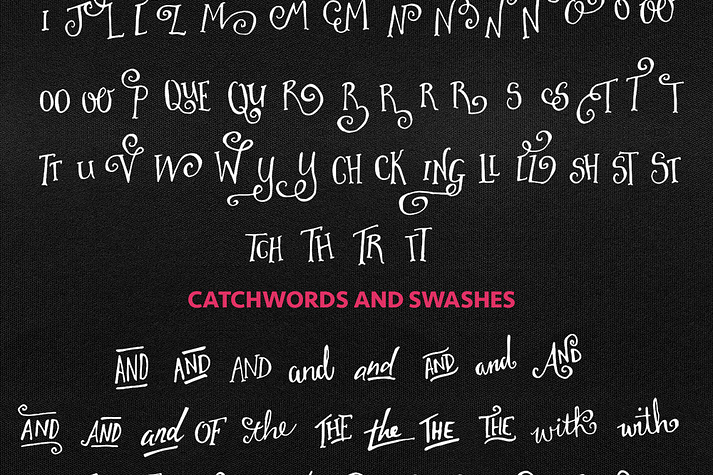 I J L L L M M M M N N N N O O OO
OO OO P QUE QU R R R R R S S T T T
TT U V W W Y Y CH CK ING LL LL SH ST ST
TCH TH TR TT
CATCHWORDS AND SWASHES
AND AND AND and and AND and AND
AND AND and OF the THE the THE THE with with